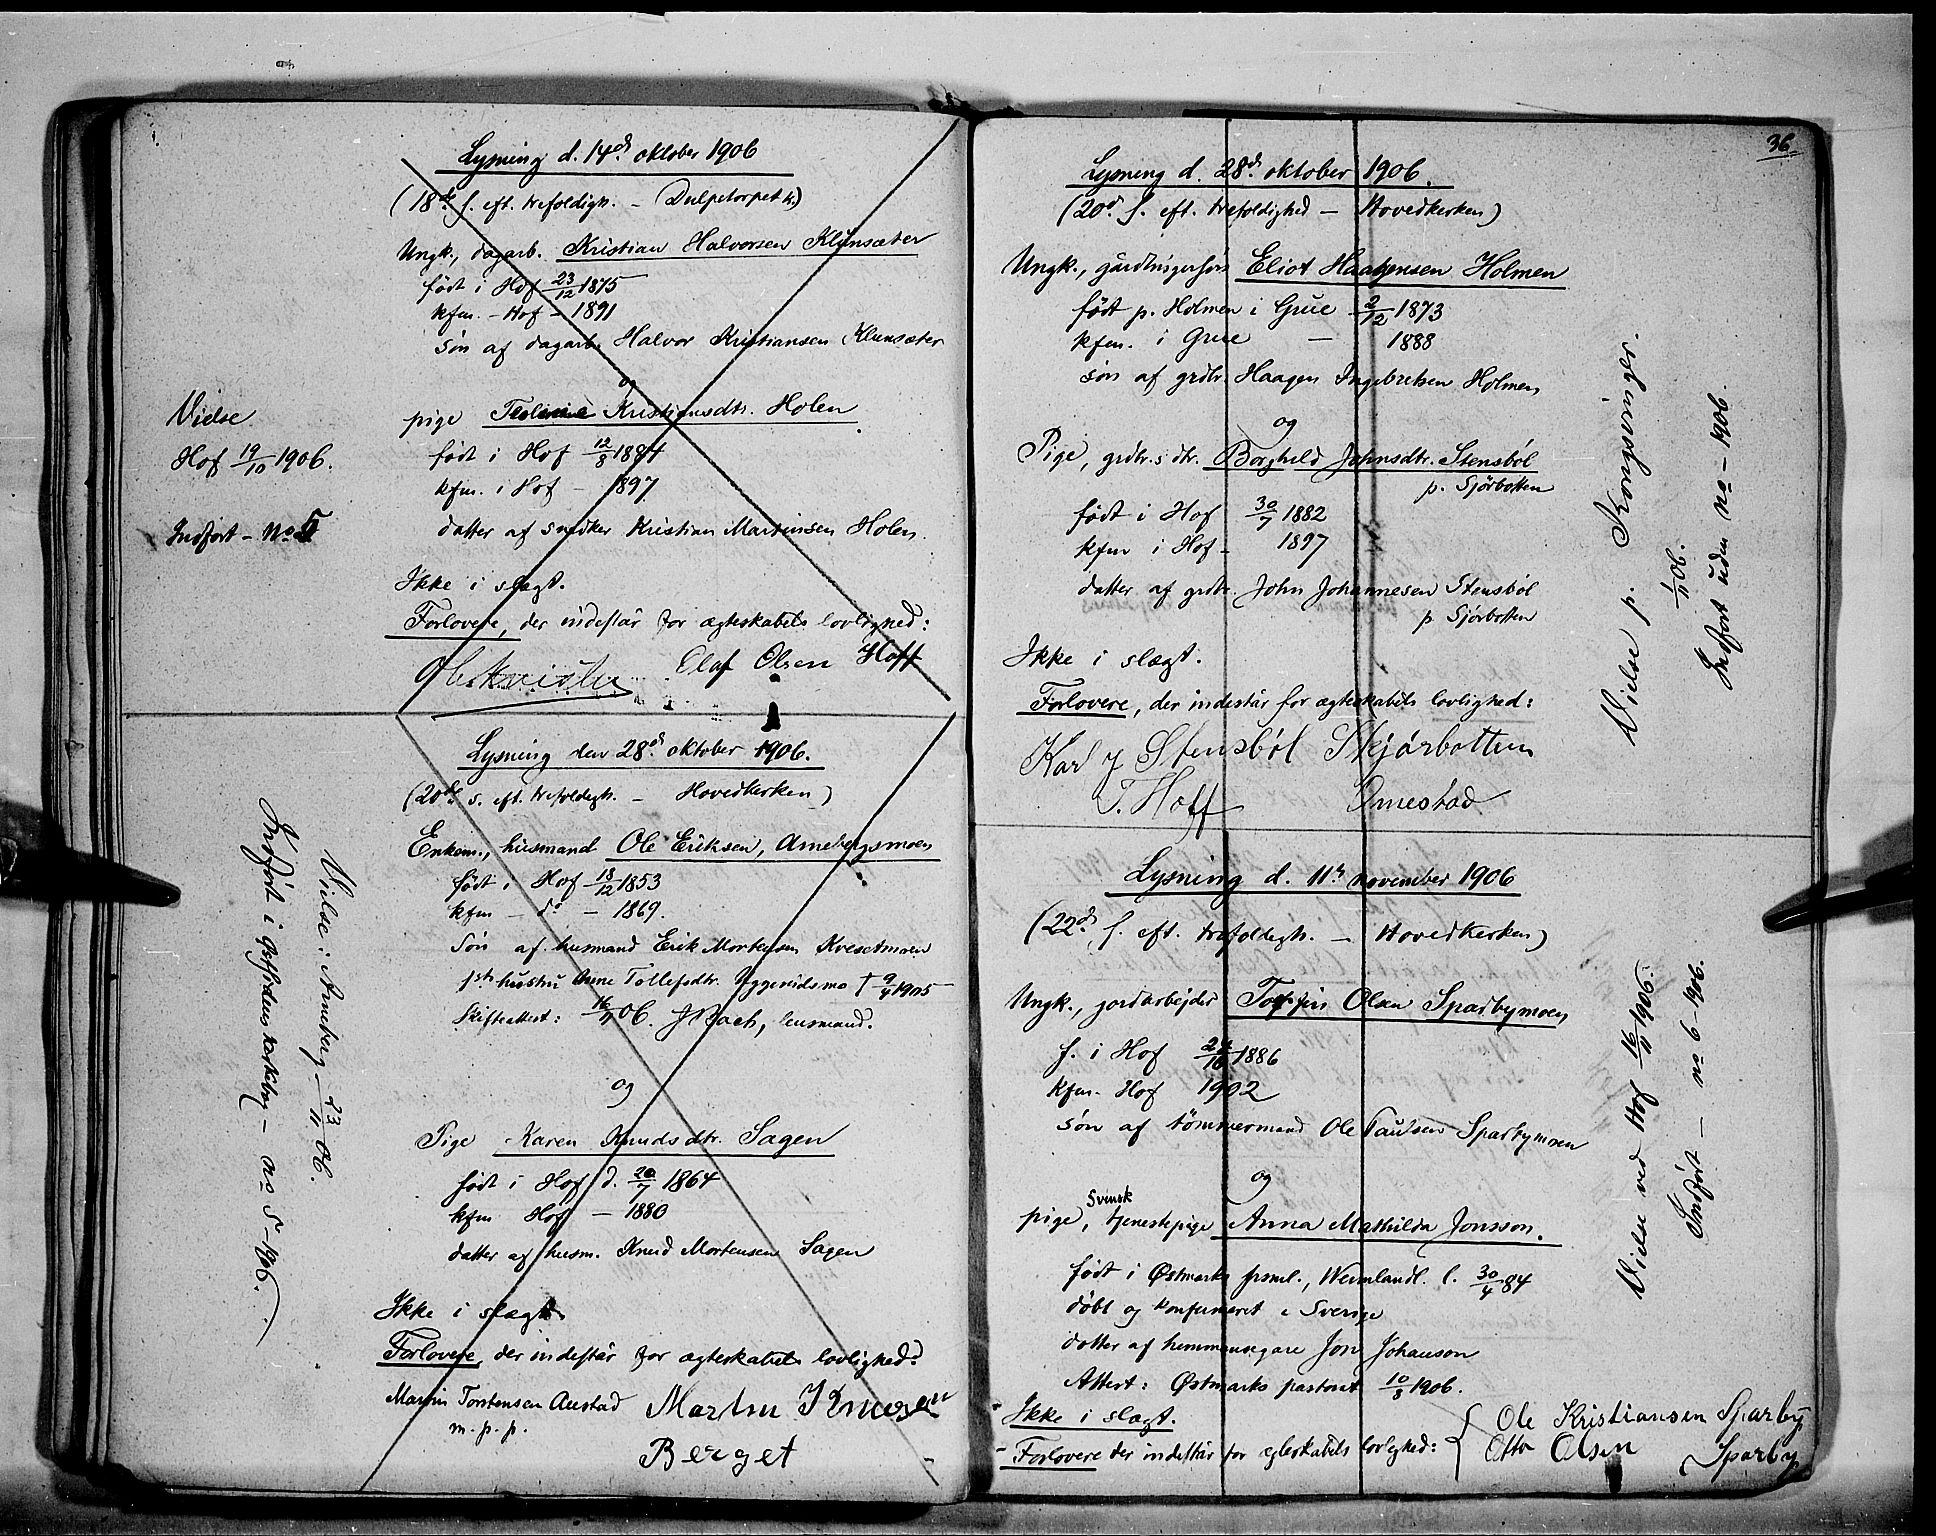 Lysning d. 14de oktober 1906
(18de s. eft. trefoldigh. – Dulpetorpet k.)
Ungk., dagarb. Kristian Halvorsen Klunsæter
født i Hof 23/12 1875
kfm. – Hof – 1891
søn af dagarb. Halvor Kristiansen Klunsæter
og
pige Kristiansdtr. Holen
født i Hof 12/8 1884
kfm. i Hof – 1897
datter af snedker Kristian Martinsen Holen.
Ikke i slægt.
Forlovere, der indestår for ægteskabets lovlighed:
Olaf Olsen Hoff
Vielse
Hof 19/10 1906.
Indført – No 5
Lysning den 28de oktober 1906.
(20de s. eft. trefoldigh. – Hovedkirken)
Enkem., husmand Ole Eriksen, Arnebergsmoen
født i Hof 18/12 1853
kfm – do – 1869.
søn af husmand Erik Mortensen Kvesetmoen
1ste hustru Anne Tollefsdtr. Uggenidsmo † 9/4 1905
Skifteattest: 06. J Bach, lensmand.
og
Pige Karen Knudsdtr. Sagen
født i Hof d. 20/7 1864
kfm Hof – 1880
datter af husm. Knud Mortensen Sagen
Ikke i slægt
Forlovere, der indestår for ægteskabets lovlighed:
Martin Torstensen Austad Martin Knudsen
m. p. p.
Berget
Vielse: Arneberg – 23/11 06.
Indført i – no 5 – 1906.
36.
Lysning d. 28de oktober 1906.
(20de s. eft. trefoldighed – Hovedkirken)
Ungk., gårdbrugerssøn Eliot Haagensen Holmen
født p. Holmen i Grue 2/12 1873
kfm. i Grue – 1888
søn af grdbr. Haagen Ingebretsen Holmen
og
Pige, grdbr.s dtr. Borghild Johnsdtr. Stensbøl
p. Sjørbotten
født i Hof 30/7 1882
kfm i Hof – 1897
datter af grdbr. John Johannesen Stensbøl
p Sjørbotten
Ikke i slægt.
Forlovere, der indestår for ægteskabets lovlighed:
Karl J Stensbøl Skjørbotten
T. Hoff Arnestad
Vielse p. Kongsvinger.
1/11 06.
Indført uden no – 1906.
Lysning d. 11te november 1906
(22de s. eft. trefoldigh. – Hovedkirken)
Ungk., jordarbejder Torfin Olsen Sparbymoen
f. i Hof 24/10 1886
kfm. Hof 1902
søn af tømmermand Ole Paulsen Sparbymoen
og
svensk
pige, tjenestepige Anna Mathilda Jonsson.
født i Østmarks psml., Wermlandl. l. 30/4 84
døbt og konfirmeret i Sverige
datter af hemmansegare Jon Johanson
Attest: Østmarks pastorat 10/8 1906.
Ikke i slægt.
Forlovere der indestår for ægteskabets lovlighed: { Ole Kristiansen Sparby
Otto Olsen Sparby
Vielse ved Hof 16/11 1906.
Indført – no 6 – 1906.